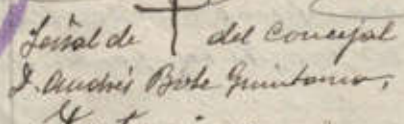 Señal de † del Concejal
D. Andrés Bote Quintana,